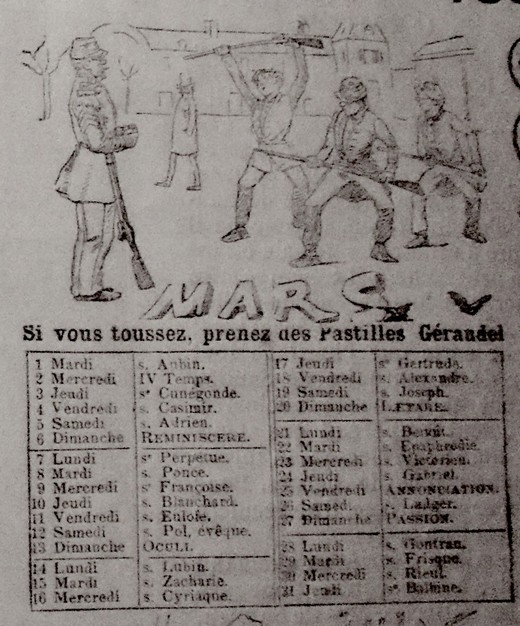 MARS
Si vous toussez, prenez des Pastilles Géraudel
1 Mardi s. Aubin.
2 Mercredi IV Temps.
3 Jeudi se Cunégonde.
4 Vendredi s. Casimir.
5 Samedi s. Adrien.
6 Dimanche REMINISCERE.
7 Lundi se Perpétue.
8 Mardi s. Ponce.
9 Mercredi se Françoise.
10 Jeudi s. Blanchard.
11 Vendredi s. Euloie.
12 Samedi s. Pol, évêque.
13 Dimanche OCULI.
14 Lundi s. Lubin.
15 Mardi s. Zacharie.
16 Mercredi s. Cyriaque.
17 Jeudi se Gertrude.
18 Vendredi s. Alexandre.
19 Samedi s. Joseph.
20 Dimanche LÆTARE.
21 Lundi s. Benoît.
22 Mardi s. Epaphrodite.
23 Mercredi s. Victorien.
24 Jeudi s. Gabriel.
25 Vendredi ANNONCIATION.
26 Samedi s. Ludger.
27 Dimanche PASSION.
28 Lundi s. Gontran.
29 Mardi s. Frisque.
30 Mercredi s. Rieul.
31 Jeudi se Balbine.